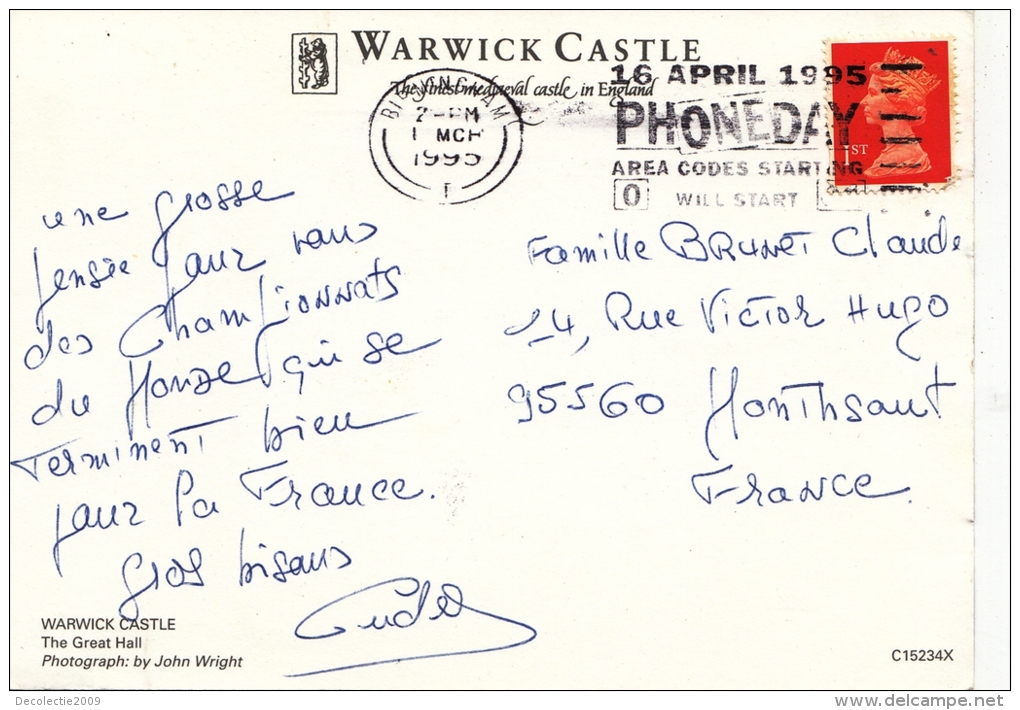 WARWICK CASTLE
The finest mediaeval castle in England
16 APRIL 1995
PHONEDAY
AREA CODES STARTING
0 WILL START
BIRMINGHAM
2-PM
1 MCH
1995
1ST
une grosse
pensée pour vous
des Championnats
du Monde qui se
Terminent bien
pour la France.
gros bisous
Famille BRUNET Claude
14, Rue VICTOR HUGO
95560 Monthsault
France.
WARWICK CASTLE
The Great Hall
Photograph: by John Wright
C15234X
Decolectie2009
www.delcampe.net